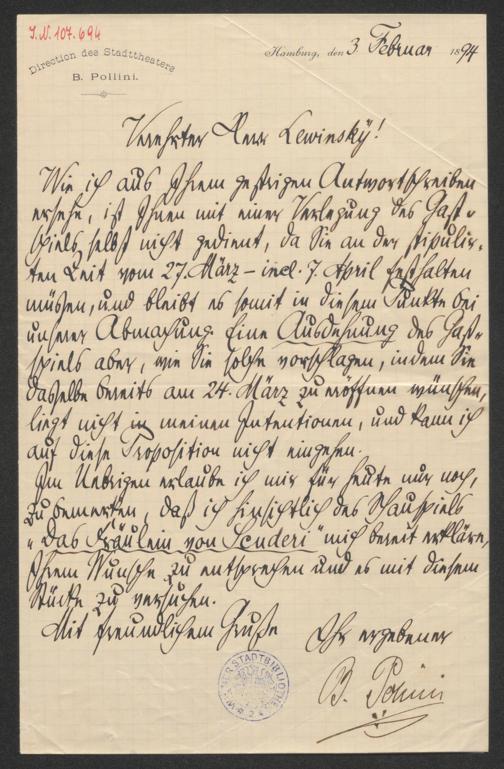 J.N. 107.694
Direction des Stadttheaters
B. Pollini.
Hamburg, den 3 Februar 1894
Verehrter Herr Lewinsky!
Wie ich aus Ihrem gestrigen Antwortschreiben
ersehe, ist Ihnen mit einer Verlegung des Gast-
spiels selbst nicht gedient, da Sie an der stipulir-
ten Zeit vom 27. März – incl. 7. April festhalten
müßen, und bleibt es somit in diesem Punkte bei
unserer Abmachung. Eine Ausdehnung des Gast-
spiels aber, wie Sie solche vorschlagen, indem Sie
dasselbe bereits am 24. März zu eröffnen wünschen,
liegt nicht in meinen Intentionen, und kann ich
auf diese Proposition nicht eingehen.
Im Uebrigen erlaube ich mir für heute nur noch,
zu bemerken, daß ich hinsichtlich des Schauspiels
"Das Fräulein von Scuderi" mich bereit erkläre,
Ihrem Wunsche zu entsprechen und es mit diesem
Stücke zu versuchen.
Mit freundlichem Gruße
Ihr ergebener
B. Pollini
WIENER STADTBIBLIOTHEK